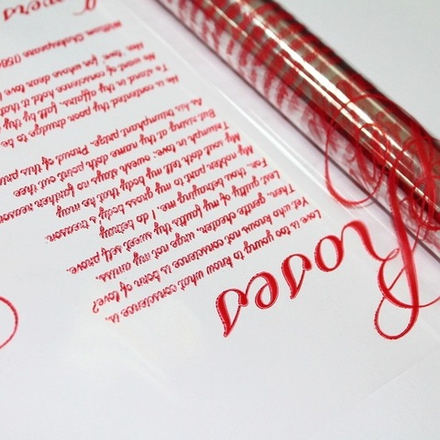 Roses
Love is too young to know what conscience is,
Yet who knows not conscience is born of love?
Then, gentle cheater, urge not my amiss,
Lest guilty of my faults thy sweet self prove.
For, thou betraying me, I do betray
My nobler part to my gross body's treason.
My soul doth tell my body that he may
Triumph in love; flesh stays no farther reason,
But rising at thy name doth point out thee
As his triumphant prize. Proud of this pride
He is contented thy poor drudge to be
To stand in thy affairs, fall by thy
No want of conscience hold it that
Her "love" for whose dear love
William Shakespeare (156